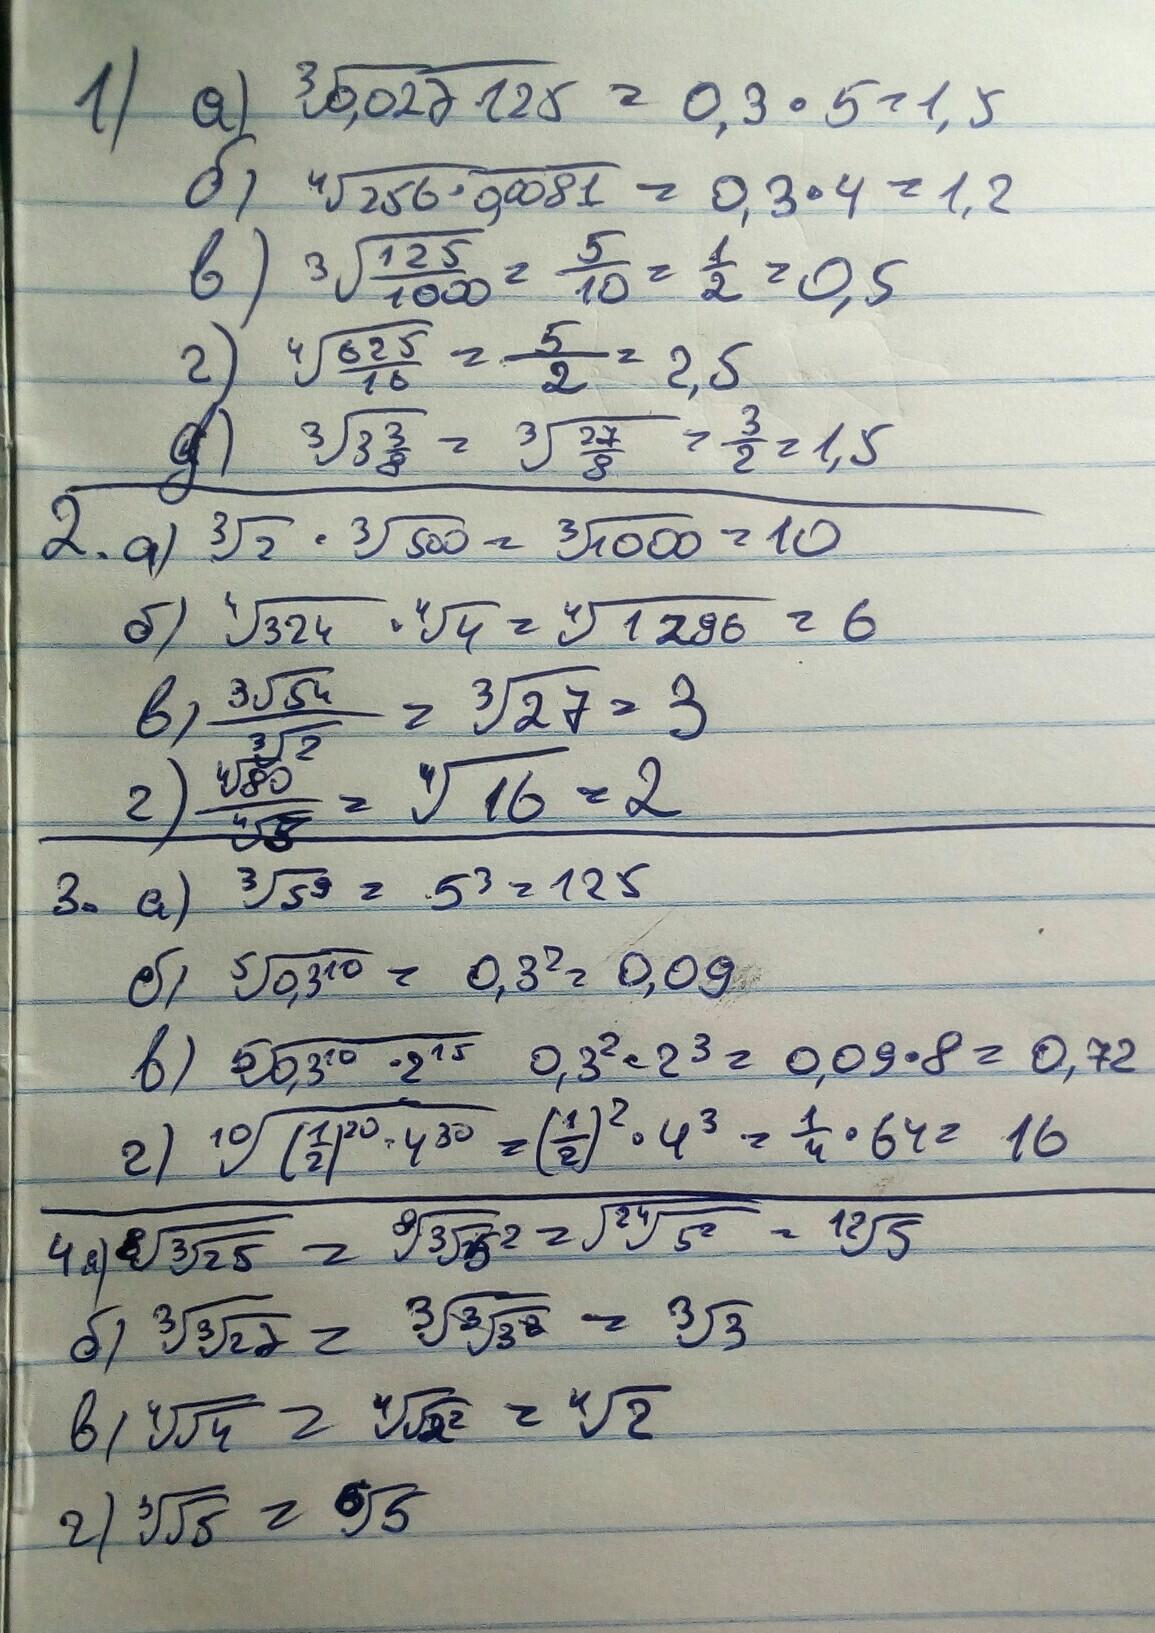 1) а) ∛(0,027 125) = 0,3 • 5 = 1,5
б) ∜(256 • 0,0081) = 0,3 • 4 = 1,2
в) ∛(125/1000) = 5/10 = 1/2 = 0,5
г) ∜(625/16) = 5/2 = 2,5
д) ∛(3 3/8) = ∛(27/8) = 3/2 = 1,5
2. а) ∛2 • ∛500 = ∛1000 = 10
б) ∜324 • ∜4 = ∜1296 = 6
в) ∛54/∛2 = ∛27 = 3
г) ∜80/∜5 = ∜16 = 2
3. а) ∛5⁹ = 5³ = 125
б) ⁵√0,3¹⁰ = 0,3² = 0,09
в) ⁵√(0,3¹⁰ • 2¹⁵) 0,3² • 2³ = 0,09 • 8 = 0,72
г) ¹⁰√((1/2)²⁰ • 4³⁰) = (1/2)² • 4³ = 1/4 • 64 = 16
4 а) ⁸√∛25 = ⁸√∛5² = √²⁴√5² = ¹²√5
б) ∛∛27 = ∛∛3³ = ∛3
в) ∜√4 = ∜√2² = ∜2
г) ∛√5 = ⁶√5